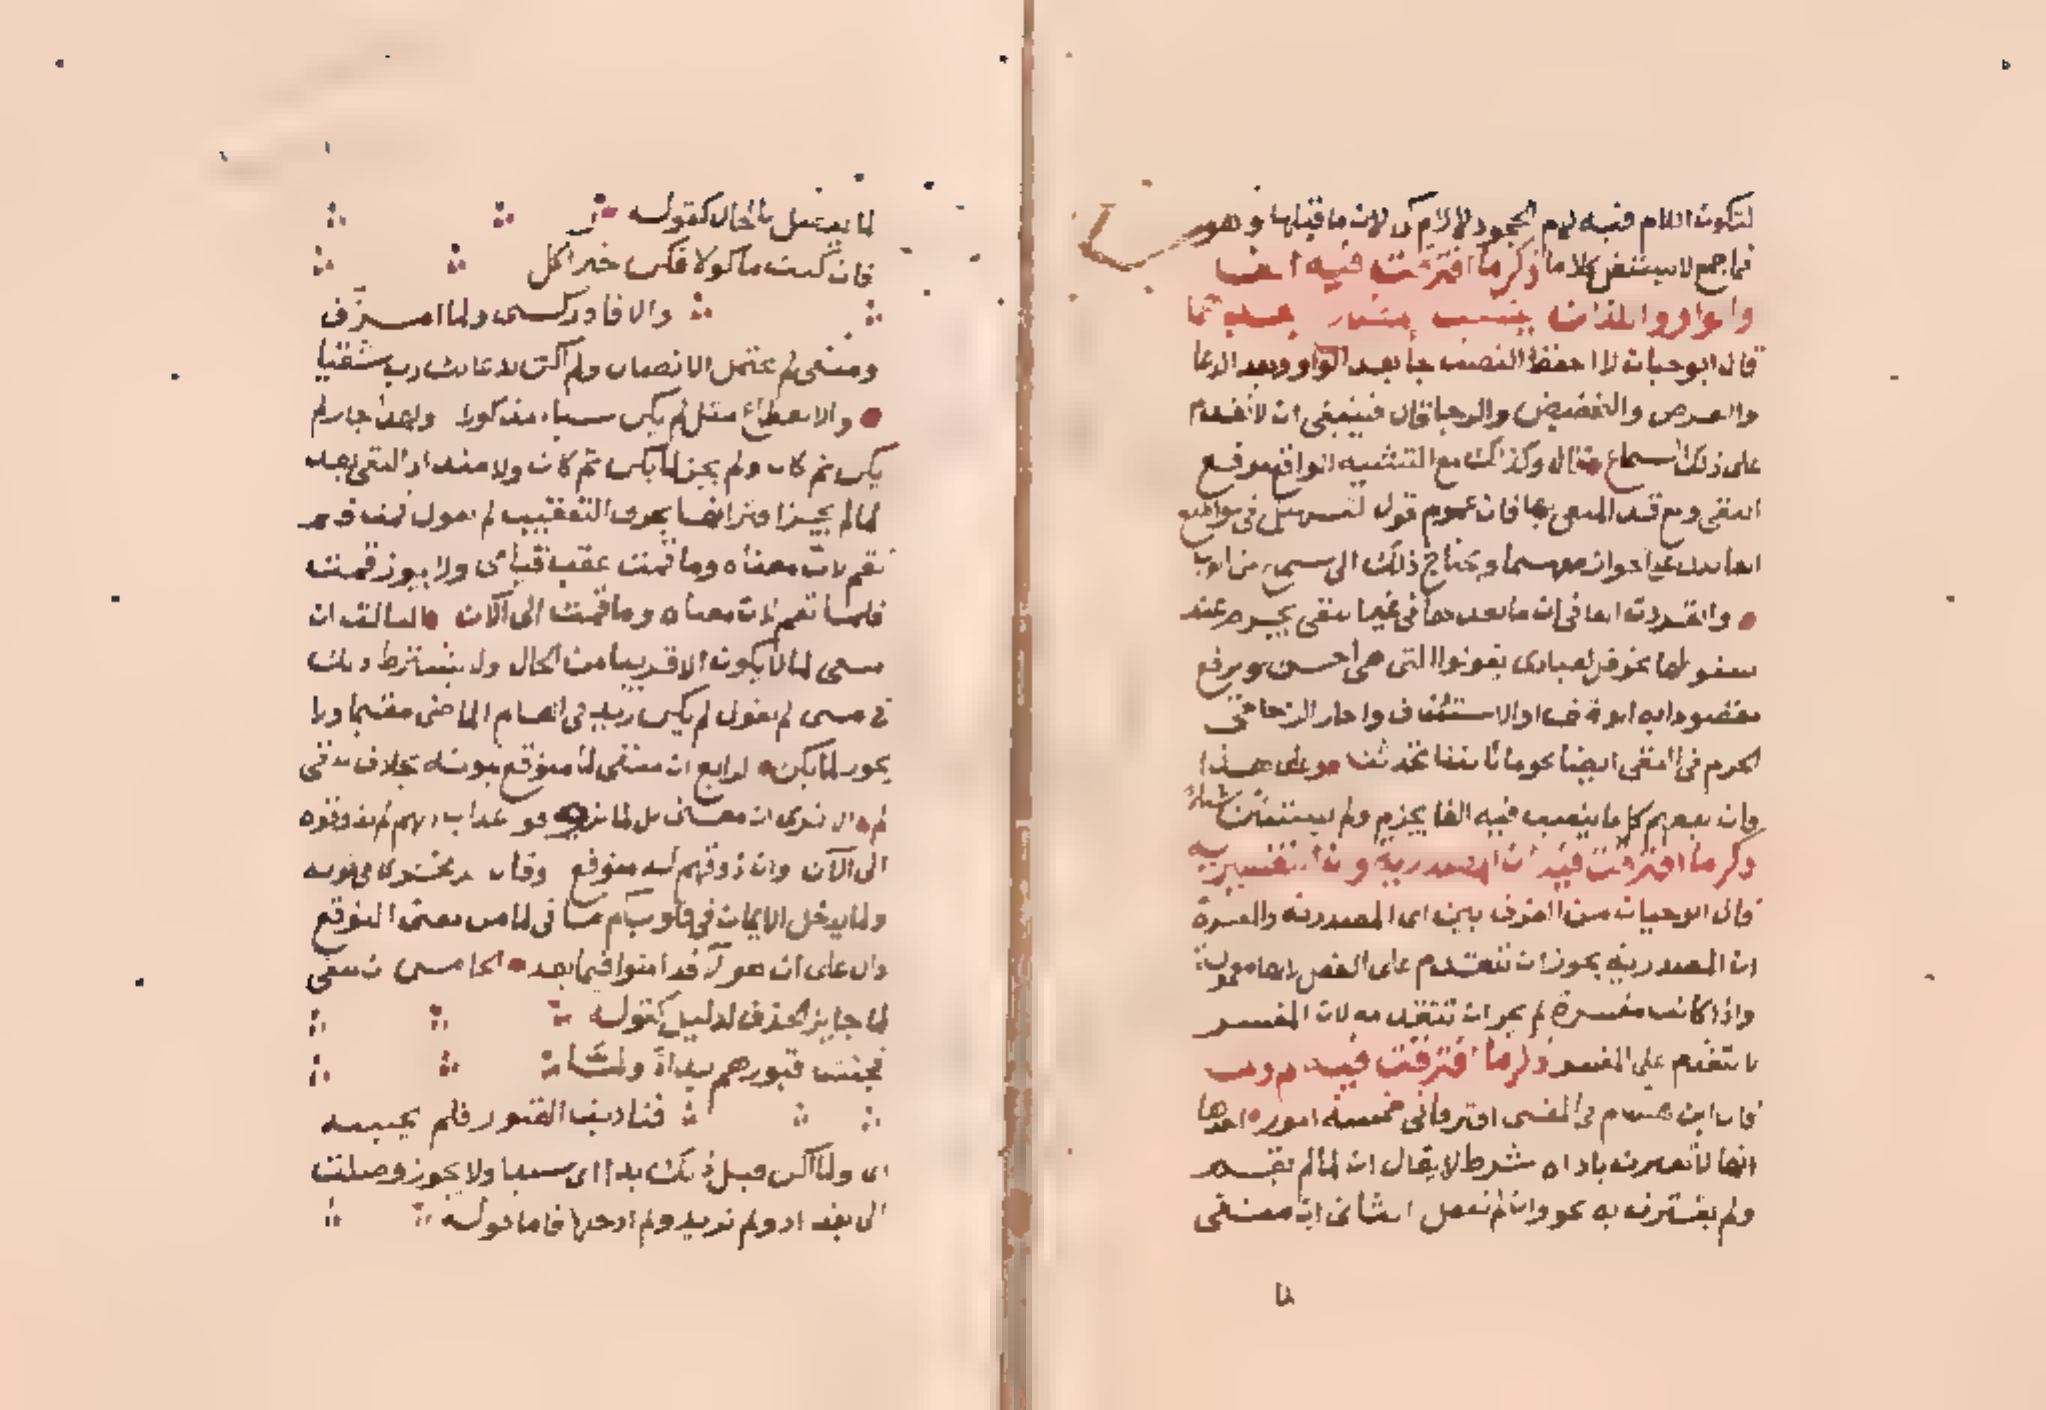 لتكون اللام فيه لام الجحود لا لام كي لان ما قبلها وهو
فاجمع لا يستقل كلاما ذكر ما افترقت فيه الفا
والواو واللذان ينصب المضارع بعدهما
قال ابو حيان لا احفظ النصب جا بعد الواو وبعد الدعا
والعرض والتحضيض والرجا قال فينبغي ان لا يقدم
على ذلك الا بسماع قال وكذلك مع التشبيه الواقع موقع
النفي ومع قد المنفي بها فان عموم قول التسهيل في مواضع
الفا يدل على جواز مع ويحتاج ذلك الى سماع من العرب
وانفردت الفا في ان ما بعدها في غير النفي يجزم عند
سقوطها نحو قل لعبادي يقولوا التي هي احسن ويرفع
مقصودا به الوصف او الاستئناف واجاز الزجاجي
الجزم في النفي ايضا نحو ما تاتينا تحدثنا وعلى هذا
قال بعضهم كل ما ينصب فيه الفا يجزم ولم يستثن شيا
ذكر ما افترقت فيه ان المصدرية وان التفسيرية
قال ابو حيان من الفرق بين ان المصدرية والمفسرة
ان المصدرية يجوز ان تتقدم على الفعل لانها معمولة
واذا كانت مفسرة لم يجز ان تتقدمه لان المفسر
لا يتقدم على المفسر ذكر ما افترقت فيه لم ولما
قال ابن هشام في المغني افترقا في خمسة امور احدها
انها لا تقترن باداة شرط لا يقال ان لما تقم
ولم يقترن به نحو وان لم تفعل الثاني ان منفي
لما
لما يتصل بالحال كقوله
فان كنت ماكولا فكن خير اكل
والا فادركني ولما امزق
ومنفي لم يحتمل الاتصال ولم اكن بدعائك رب شقيا
والانقطاع مثل لم يكن شيا مذكورا ولهذا جاز لم
يكن ثم كان ولم يجز لما يكن ثم كان ولامتداد النفي بعد
لما لم يجز اقترانها بحرف التعقيب لم تقول قمت فلم
تقم لان معناه وما قمت عقب قيامي ولا يجوز قمت
فلما تقم لان معناه وما قمت الى الان الثالث ان
منفي لما لا يكون الا قريبا من الحال ولا يشترط ذلك
في منفي لم تقول لم يكن زيد في العام الماضي مقيما ولا
يجوز لما يكن الرابع ان منفي لما متوقع ثبوته بخلاف منفي
لم الا ترى ان معنى بل لما يذوقوا عذاب انهم لم يذوقوه
الى الان وان ذوقهم له متوقع وقال الزمخشري في قوله
ولما يدخل الايمان في قلوبكم ما في لما من معنى التوقع
دال على ان هولا قد امنوا فيما بعد الخامس ان منفي
لما جايز الحذف لدليل كقوله
فجئت قبورهم بدا ولما
فناديت القبور فلم يجبنه
اي ولما اكن قبل ذلك بدا اي سيدا ولا يجوز وصلت
الى بغداد ولم تريد ولم ادخلها فاما قوله